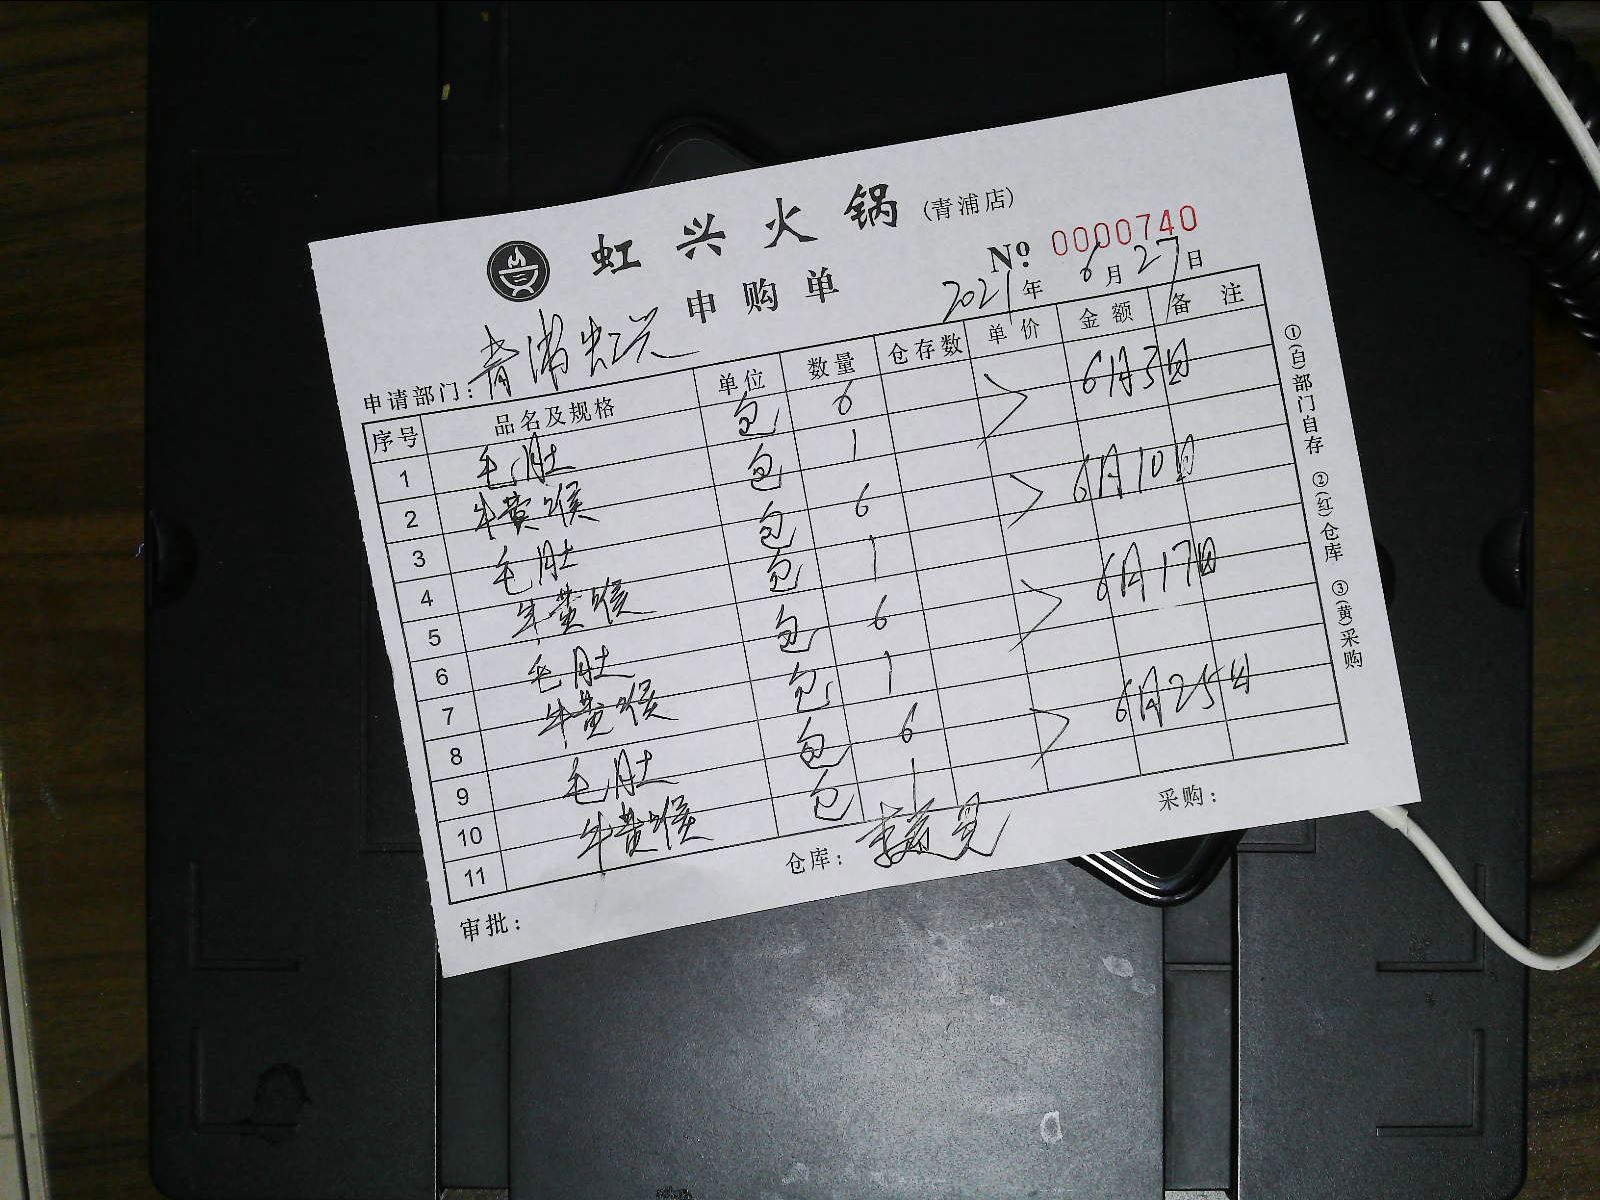 虹兴火锅(青浦店)
申购单
№ 0000740
2021年6月27日
申请部门:青浦虹兴
序号 品名及规格 单位 数量 仓存数 单价 金额 备注
1 毛肚 包 6
2 牛黄喉 包 1 > 6月3日
3 毛肚 包 6
4 牛黄喉 包 1 > 6月10日
5 毛肚 包 6
6 牛黄喉 包 1 > 6月17日
7 毛肚 包 6
8 牛黄喉 包 1 > 6月25日
9
10
11
审批: 仓库: 采购:
①(白)部门自存 ②(红)仓库 ③(黄)采购